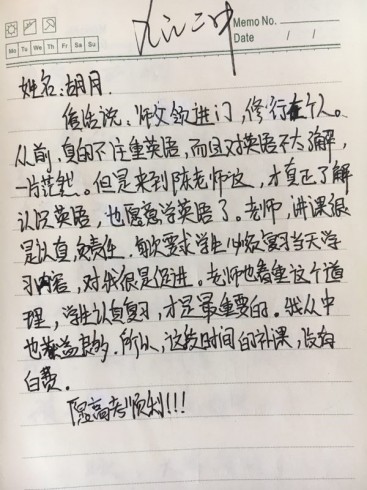 九江二中
Memo No.
Mo Tu We Th Fr Sa Su
Date / /
姓名:胡月.
俗话说:师父领进门,修行在个人。
从前,真的不注重英语,而且对英语不大了解,
一片茫然。但是来到陈老师这,才真正了解
认识英语,也愿意学英语了。老师,讲课很
是认真负责任.每次要求学生必须复习当天学
习内容,对我很是促进。老师也看重这个道
理,学生认真复习,才是最重要的。我从中
也受益良多.所以,这段时间的补课,没有
白费.
愿高考顺利!!!